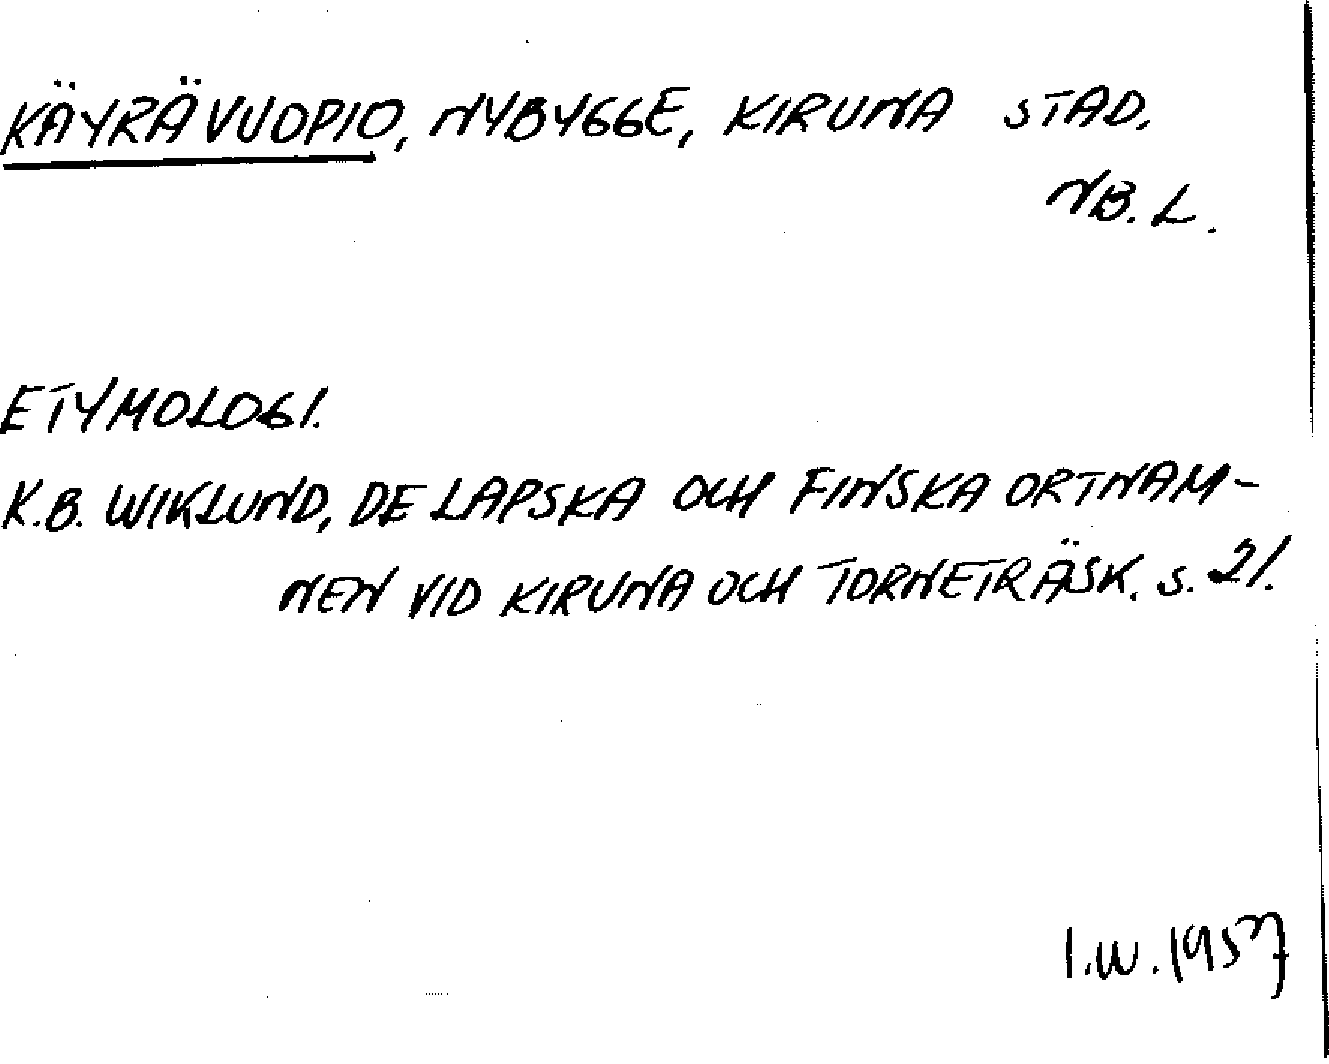 KÄYRÄVUOPIO, NYBYGGE, KIRUNA STAD.
NB. L.
ETYMOLOGI.
K.B. WIKLUND, DE LAPSKA OCH FINSKA ORTNAM-
NEN VID KIRUNA OCH TORNETRÄSK. S. 21.
I.W. 1957